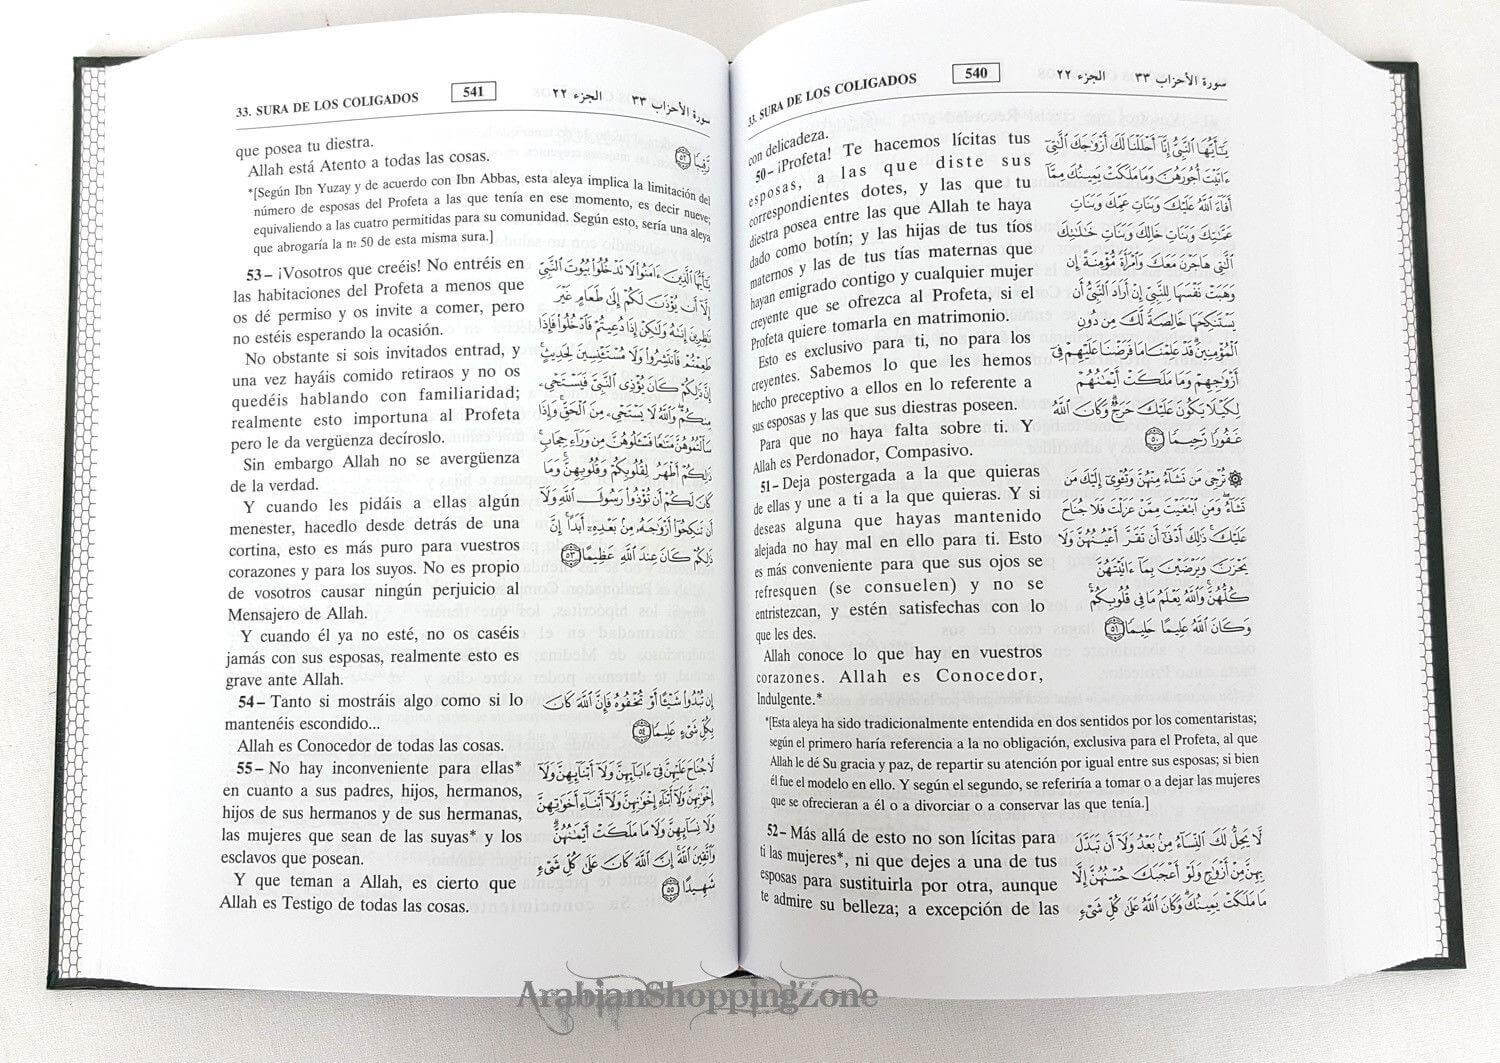 33. SURA DE LOS COLIGADOS
540
الجزء ٢٢
سورة الأحزاب ٣٣
con delicadeza.
50– ¡Profeta! Te hacemos lícitas tus
esposas, a las que diste sus
correspondientes dotes, y las que tu
diestra posea entre las que Allah te haya
dado como botín; y las hijas de tus tíos
maternos y las de tus tías maternas que
hayan emigrado contigo y cualquier mujer
creyente que se ofrezca al Profeta, si el
Profeta quiere tomarla en matrimonio.
Esto es exclusivo para ti, no para los
creyentes. Sabemos lo que les hemos
hecho preceptivo a ellos en lo referente a
sus esposas y las que sus diestras poseen.
Para que no haya falta sobre ti. Y
Allah es Perdonador, Compasivo.
يَٰٓأَيُّهَا ٱلنَّبِيُّ إِنَّآ أَحْلَلْنَا لَكَ أَزْوَٰجَكَ ٱلَّٰتِيٓ
ءَاتَيْتَ أُجُورَهُنَّ وَمَا مَلَكَتْ يَمِينُكَ مِمَّآ
أَفَآءَ ٱللَّهُ عَلَيْكَ وَبَنَاتِ عَمِّكَ وَبَنَاتِ
عَمَّٰتِكَ وَبَنَاتِ خَالِكَ وَبَنَاتِ خَٰلَٰتِكَ
ٱلَّٰتِي هَاجَرْنَ مَعَكَ وَٱمْرَأَةً مُّؤْمِنَةً إِن
وَهَبَتْ نَفْسَهَا لِلنَّبِيِّ إِنْ أَرَادَ ٱلنَّبِيُّ أَن
يَسْتَنكِحَهَا خَالِصَةً لَّكَ مِن دُونِ
ٱلْمُؤْمِنِينَ ۗ قَدْ عَلِمْنَا مَا فَرَضْنَا عَلَيْهِمْ فِيٓ
أَزْوَٰجِهِمْ وَمَا مَلَكَتْ أَيْمَٰنُهُمْ
لِكَيْلَا يَكُونَ عَلَيْكَ حَرَجٌ ۗ وَكَانَ ٱللَّهُ
غَفُورًا رَّحِيمًا ٥٠
51– Deja postergada a la que quieras
de ellas y une a ti a la que quieras. Y si
deseas alguna que hayas mantenido
alejada no hay mal en ello para ti. Esto
es más conveniente para que sus ojos se
refresquen (se consuelen) y no se
entristezcan, y estén satisfechas con lo
que les des.
Allah conoce lo que hay en vuestros
corazones. Allah es Conocedor,
Indulgente.*
۞ تُرْجِي مَن تَشَآءُ مِنْهُنَّ وَتُـْٔوِيٓ إِلَيْكَ مَن
تَشَآءُ ۖ وَمَنِ ٱبْتَغَيْتَ مِمَّنْ عَزَلْتَ فَلَا جُنَاحَ
عَلَيْكَ ۚ ذَٰلِكَ أَدْنَىٰٓ أَن تَقَرَّ أَعْيُنُهُنَّ وَلَا
يَحْزَنَّ وَيَرْضَيْنَ بِمَآ ءَاتَيْتَهُنَّ
كُلُّهُنَّ ۚ وَٱللَّهُ يَعْلَمُ مَا فِي قُلُوبِكُمْ ۚ
وَكَانَ ٱللَّهُ عَلِيمًا حَلِيمًا ٥١
*[Esta aleya ha sido tradicionalmente entendida en dos sentidos por los comentaristas;
según el primero haría referencia a la no obligación, exclusiva para el Profeta, al que
Allah le dé Su gracia y paz, de repartir su atención por igual entre sus esposas; si bien
él fue el modelo en ello. Y según el segundo, se referiría a tomar o a dejar las mujeres
que se ofrecieran a él o a divorciar o a conservar las que tenía.]
52– Más allá de esto no son lícitas para
ti las mujeres*, ni que dejes a una de tus
esposas para sustituirla por otra, aunque
te admire su belleza; a excepción de las
لَّا يَحِلُّ لَكَ ٱلنِّسَآءُ مِنۢ بَعْدُ وَلَآ أَن تَبَدَّلَ
بِهِنَّ مِنْ أَزْوَٰجٍ وَلَوْ أَعْجَبَكَ حُسْنُهُنَّ إِلَّا
مَا مَلَكَتْ يَمِينُكَ ۗ وَكَانَ ٱللَّهُ عَلَىٰ كُلِّ شَيْءٍ
33. SURA DE LOS COLIGADOS
541
الجزء ٢٢
سورة الأحزاب ٣٣
que posea tu diestra.
Allah está Atento a todas las cosas.
رَّقِيبًا ٥٢
*[Según Ibn Yuzay y de acuerdo con Ibn Abbas, esta aleya implica la limitación del
número de esposas del Profeta a las que tenía en ese momento, es decir nueve;
equivaliendo a las cuatro permitidas para su comunidad. Según esto, sería una aleya
que abrogaría la nº 50 de esta misma sura.]
53– ¡Vosotros que creéis! No entréis en
las habitaciones del Profeta a menos que
os dé permiso y os invite a comer, pero
no estéis esperando la ocasión.
No obstante si sois invitados entrad, y
una vez hayáis comido retiraos y no os
quedéis hablando con familiaridad;
realmente esto importuna al Profeta
pero le da vergüenza decíroslo.
Sin embargo Allah no se avergüenza
de la verdad.
Y cuando les pidáis a ellas algún
menester, hacedlo desde detrás de una
cortina, esto es más puro para vuestros
corazones y para los suyos. No es propio
de vosotros causar ningún perjuicio al
Mensajero de Allah.
Y cuando él ya no esté, no os caséis
jamás con sus esposas, realmente esto es
grave ante Allah.
يَٰٓأَيُّهَا ٱلَّذِينَ ءَامَنُوا۟ لَا تَدْخُلُوا۟ بُيُوتَ ٱلنَّبِيِّ
إِلَّآ أَن يُؤْذَنَ لَكُمْ إِلَىٰ طَعَامٍ غَيْرَ
نَٰظِرِينَ إِنَىٰهُ وَلَٰكِنْ إِذَا دُعِيتُمْ فَٱدْخُلُوا۟ فَإِذَا
طَعِمْتُمْ فَٱنتَشِرُوا۟ وَلَا مُسْتَـْٔنِسِينَ لِحَدِيثٍ ۚ
إِنَّ ذَٰلِكُمْ كَانَ يُؤْذِي ٱلنَّبِيَّ فَيَسْتَحْيِۦ
مِنكُمْ ۖ وَٱللَّهُ لَا يَسْتَحْيِۦ مِنَ ٱلْحَقِّ ۚ وَإِذَا
سَأَلْتُمُوهُنَّ مَتَٰعًا فَسْـَٔلُوهُنَّ مِن وَرَآءِ حِجَابٍ ۚ
ذَٰلِكُمْ أَطْهَرُ لِقُلُوبِكُمْ وَقُلُوبِهِنَّ ۚ وَمَا
كَانَ لَكُمْ أَن تُؤْذُوا۟ رَسُولَ ٱللَّهِ وَلَآ
أَن تَنكِحُوٓا۟ أَزْوَٰجَهُۥ مِنۢ بَعْدِهِۦٓ أَبَدًا ۚ إِنَّ
ذَٰلِكُمْ كَانَ عِندَ ٱللَّهِ عَظِيمًا ٥٣
54– Tanto si mostráis algo como si lo
mantenéis escondido...
Allah es Conocedor de todas las cosas.
إِن تُبْدُوا۟ شَيْـًٔا أَوْ تُخْفُوهُ فَإِنَّ ٱللَّهَ كَانَ
بِكُلِّ شَيْءٍ عَلِيمًا ٥٤
55– No hay inconveniente para ellas*
en cuanto a sus padres, hijos, hermanos,
hijos de sus hermanos y de sus hermanas,
las mujeres que sean de las suyas* y los
esclavos que posean.
Y que teman a Allah, es cierto que
Allah es Testigo de todas las cosas.
لَّا جُنَاحَ عَلَيْهِنَّ فِيٓ ءَابَآئِهِنَّ وَلَآ أَبْنَآئِهِنَّ وَلَآ
إِخْوَٰنِهِنَّ وَلَآ أَبْنَآءِ إِخْوَٰنِهِنَّ وَلَآ أَبْنَآءِ أَخَوَٰتِهِنَّ
وَلَا نِسَآئِهِنَّ وَلَا مَا مَلَكَتْ أَيْمَٰنُهُنَّ ۗ
وَٱتَّقِينَ ٱللَّهَ ۚ إِنَّ ٱللَّهَ كَانَ عَلَىٰ كُلِّ شَيْءٍ
شَهِيدًا ٥٥
ArabianShoppingZone